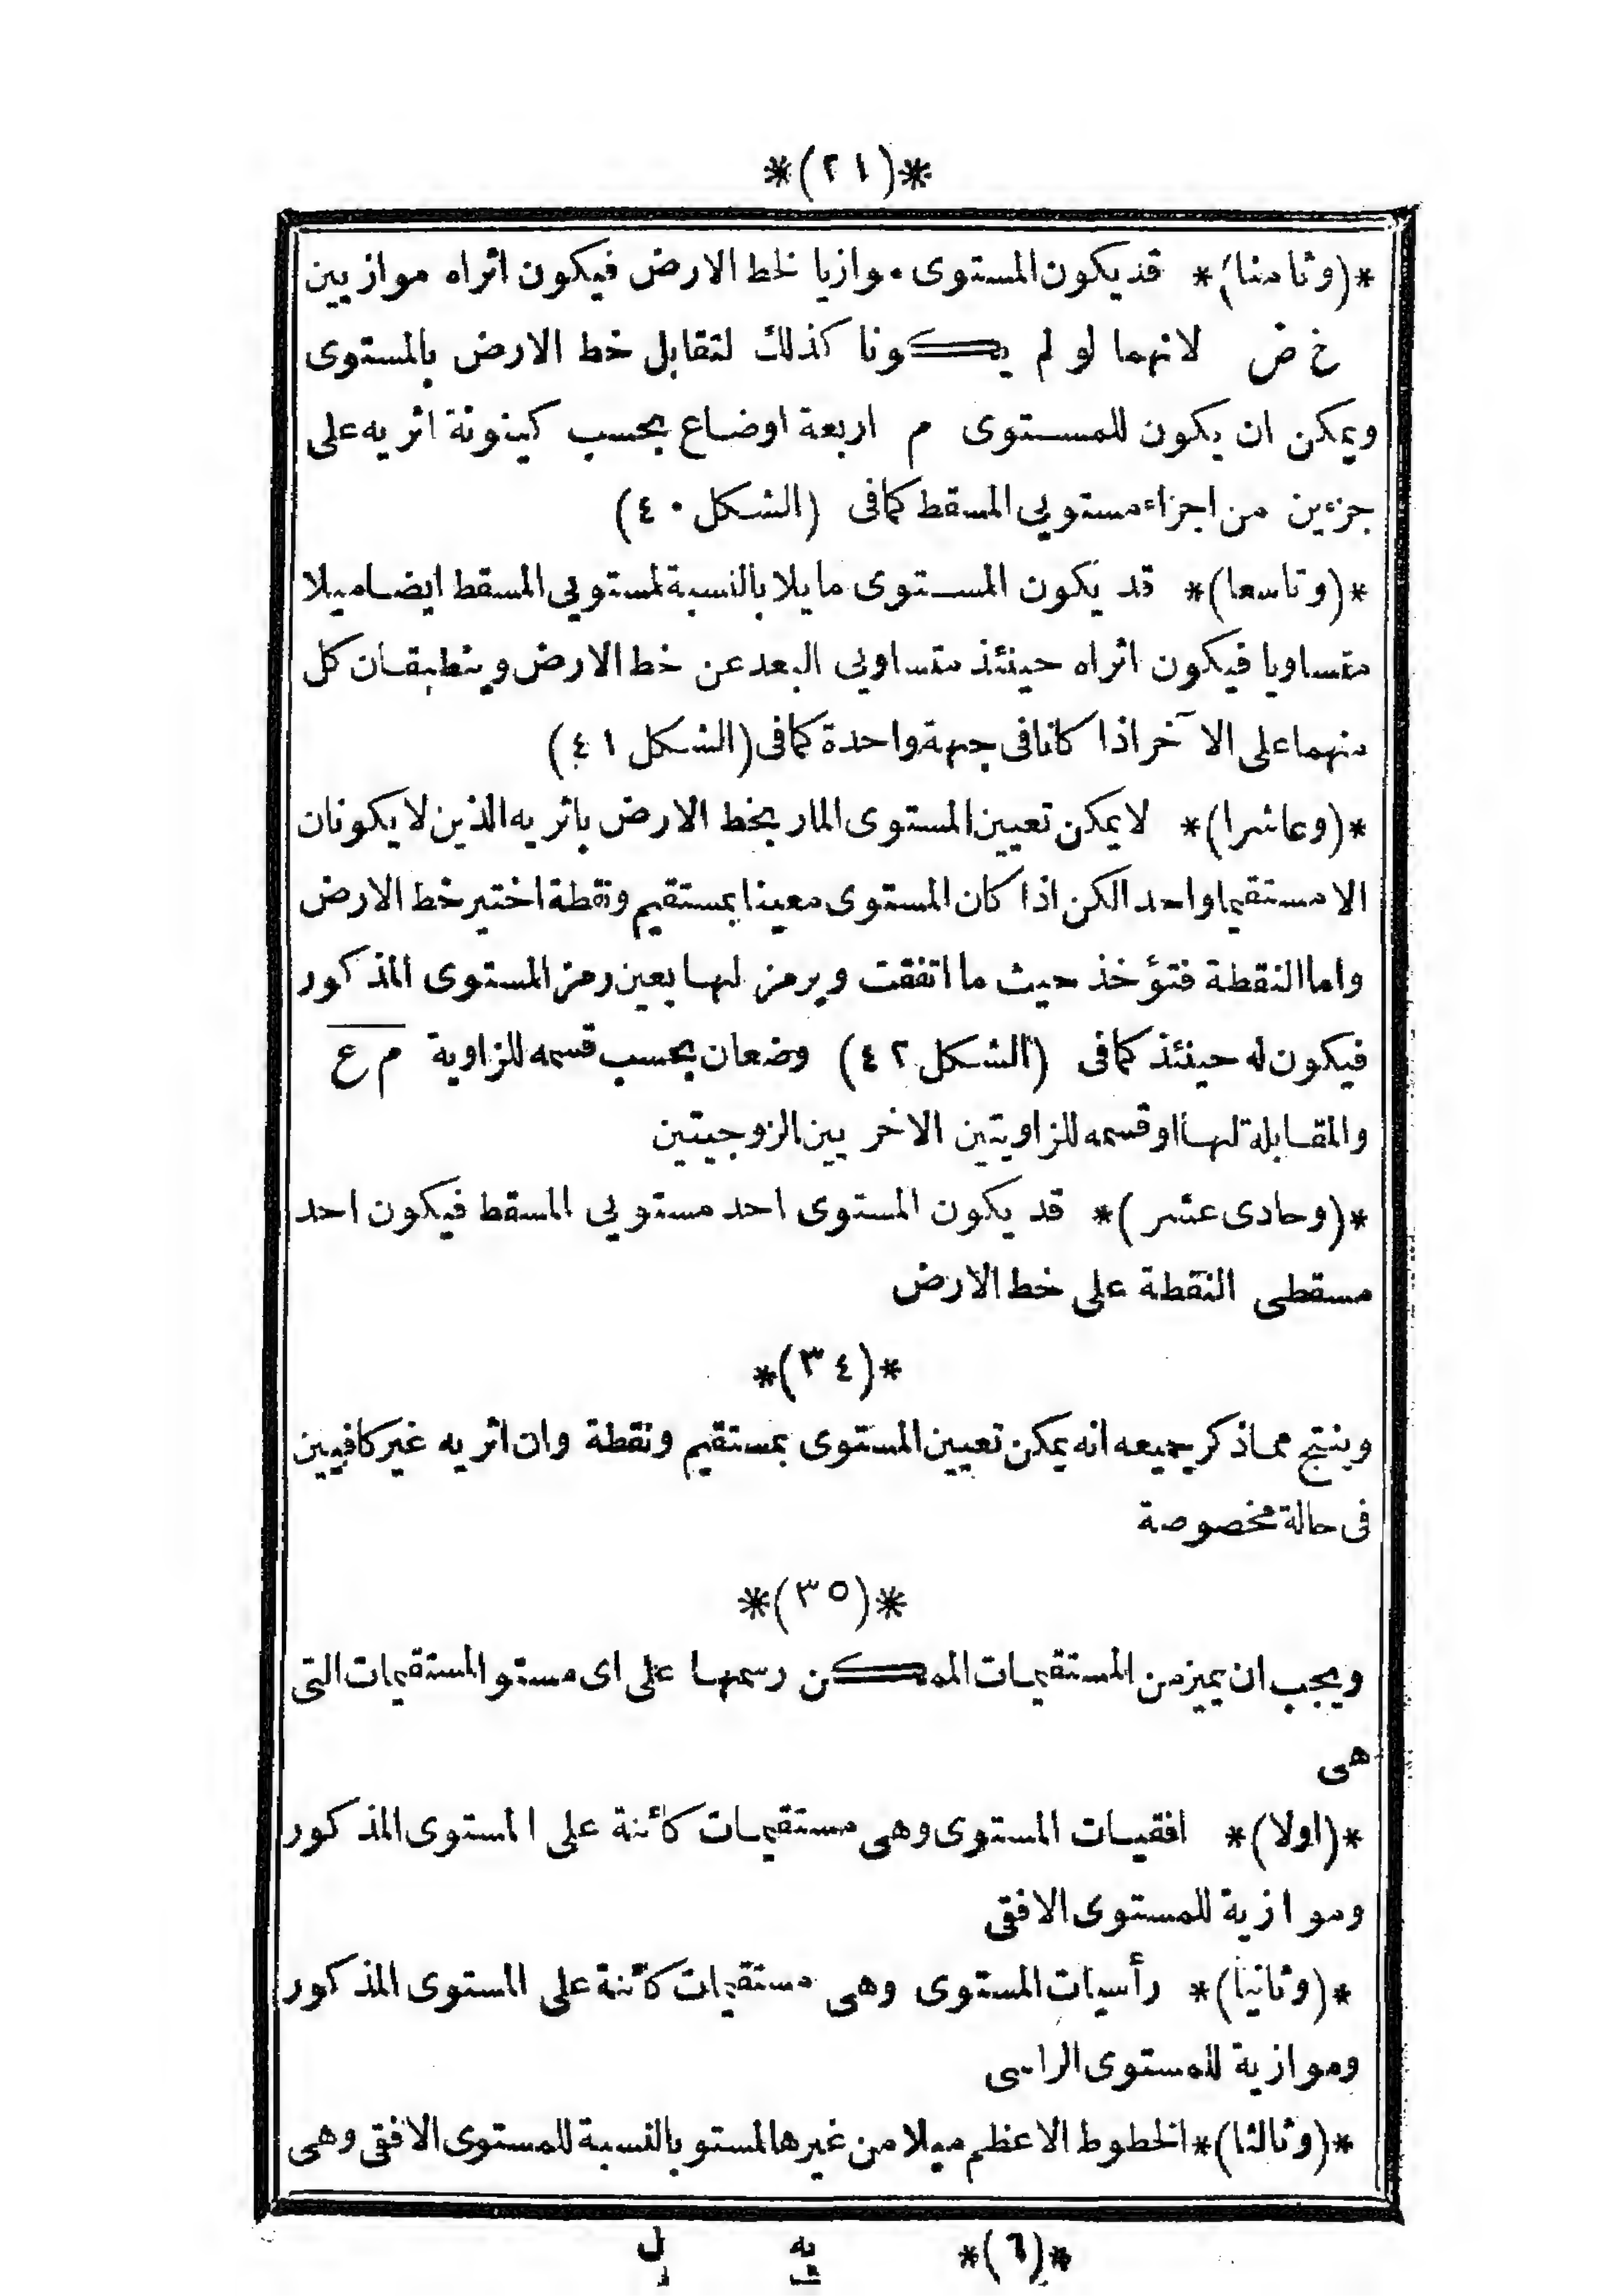 *(٢١)*
*(وثامنا)* قد يكون المستوى موازيا لخط الارض فيكون اثراه موازيين
خ ض لانهما لو لم يكونا كذلك لتقابل خط الارض بالمستوى
ويمكن ان يكون للمستوى م اربعة اوضاع بحسب كينونة اثريه على
جزءين من اجزاء مستويى المسقط كما فى (الشكل ٤٠)
*(وتاسعا)* قد يكون المستوى مايلا بالنسبة لمستويى المسقط ايضا ميلا
متساويا فيكون اثراه حينئذ متساويى البعد عن خط الارض وينطبقان كل
منهما على الآخر اذا كانا فى جهة واحدة كما فى (الشكل ٤١)
*(وعاشرا)* لا يمكن تعيين المستوى المار بخط الارض باثريه الذين لا يكونان
الا مستقيما واحد الكن اذا كان المستوى معينا بمستقيم ونقطة اختير خط الارض
واما النقطة فتؤخذ حيث ما اتفقت ويرمز لها بعين رمز المستوى المذكور
فيكون له حينئذ كما فى (الشكل ٤٢) وضعان بحسب قسمه للزاوية م ع
والمقابلة لها او قسمه للزاويتين الاخريين الزوجيتين
*(وحادى عشر)* قد يكون المستوى احد مستويى المسقط فيكون احد
مسقطى النقطة على خط الارض
*(٣٤)*
وينتج مما ذكر جميعه انه يمكن تعيين المستوى بمستقيم ونقطة وان اثريه غير كافيين
فى حالة مخصوصة
*(٣٥)*
ويجب ان يميز من المستقيمات الممكن رسمها على اى مستو المستقيمات التى
هى
*(اولا)* افقيات المستوى وهى مستقيمات كائنة على المستوى المذكور
وموازية للمستوى الافقى
*(وثانيا)* رأسيات المستوى وهى مستقيمات كائنة على المستوى المذكور
وموازية للمستوى الراسى
*(وثالثا)* الخطوط الاعظم ميلا من غيرها لمستو بالنسبة للمستوى الافقى وهى
*(٦)* يه ل